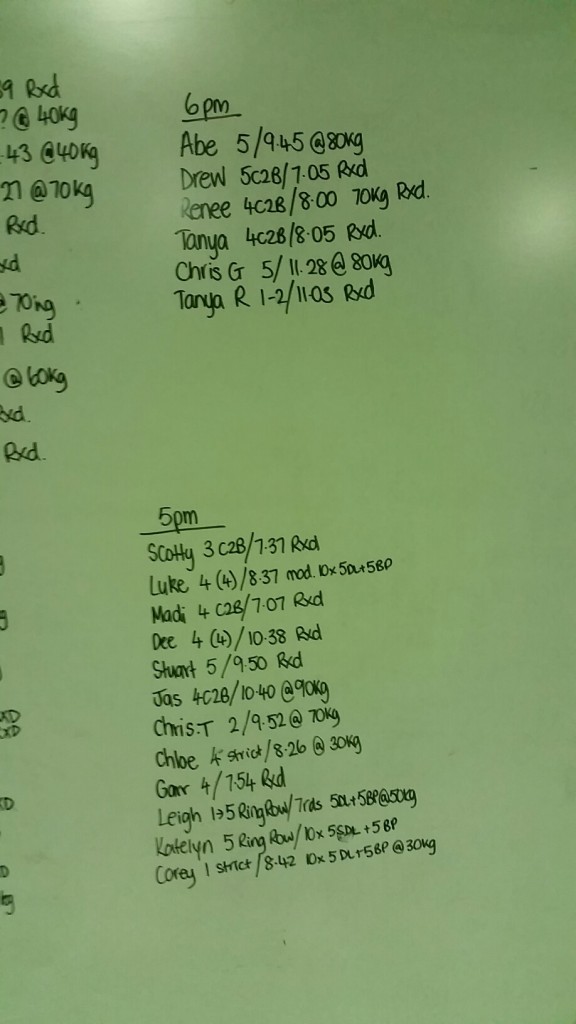 39 Rxd
? @ 40kg
.43 @40kg
27 @70kg
Rxd.
xd
@ 70ing
1 Rxd
@ 60kg
Rxd.
Rxd.
6pm
Abe 5/9.45 @80kg
Drew 5C2B/7.05 Rxd
Renee 4C2B/8.00 70kg Rxd.
Tanya 4C2B/8.05 Rxd.
Chris G 5/11.28 @ 80kg
Tanya R 1-2/11.03 Rxd
5pm
Scotty 3 C2B/7.37 Rxd
Luke 4 (4)/8.37 mod. 10x5DL+5BP
Madi 4 C2B/7.07 Rxd
Dee 4 (4)/10.38 Rxd
Stuart 5/9.50 Rxd
Jas 4C2B/10.40 @90kg
Chris.T 2/9.52 @ 70kg
Chloe 4 strict/8.26 @ 30kg
4/7.54 Rxd
Leigh 1→5 Ring Row/7rds 5DL+5BP@50kg
Katelyn 5 Ring Row/10x 5SDL +5BP
Corey 1 strict/8.42 10x 5DL+5BP @30kg
XD
XD
XD
D
kg